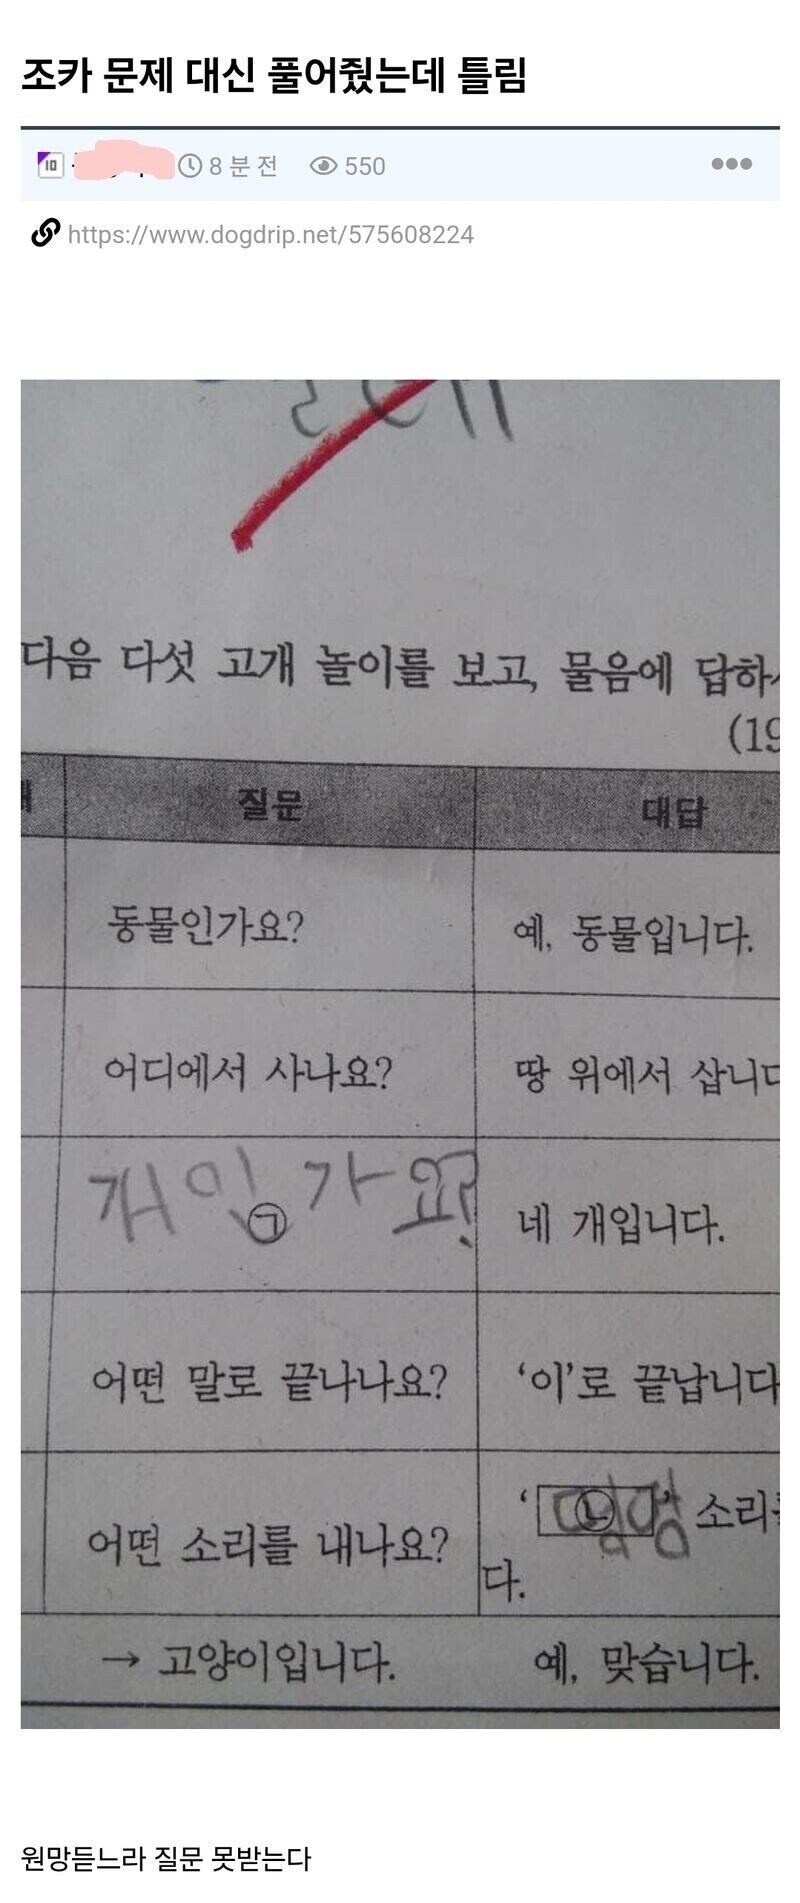 조카 문제 대신 풀어줬는데 틀림
8 분 전 550
https://www.dogdrip.net/575608224
다음 다섯 고개 놀이를 보고, 물음에 답하
(19
질문 대답
동물인가요? 예, 동물입니다.
어디에서 사나요? 땅 위에서 삽니다
개인가요? ㉠ 네 개입니다.
어떤 말로 끝나나요? ‘이’로 끝납니다
어떤 소리를 내나요? ‘ ㉡ ’ 소리
다.
→ 고양이입니다. 예, 맞습니다.
원망듣느라 질문 못받는다